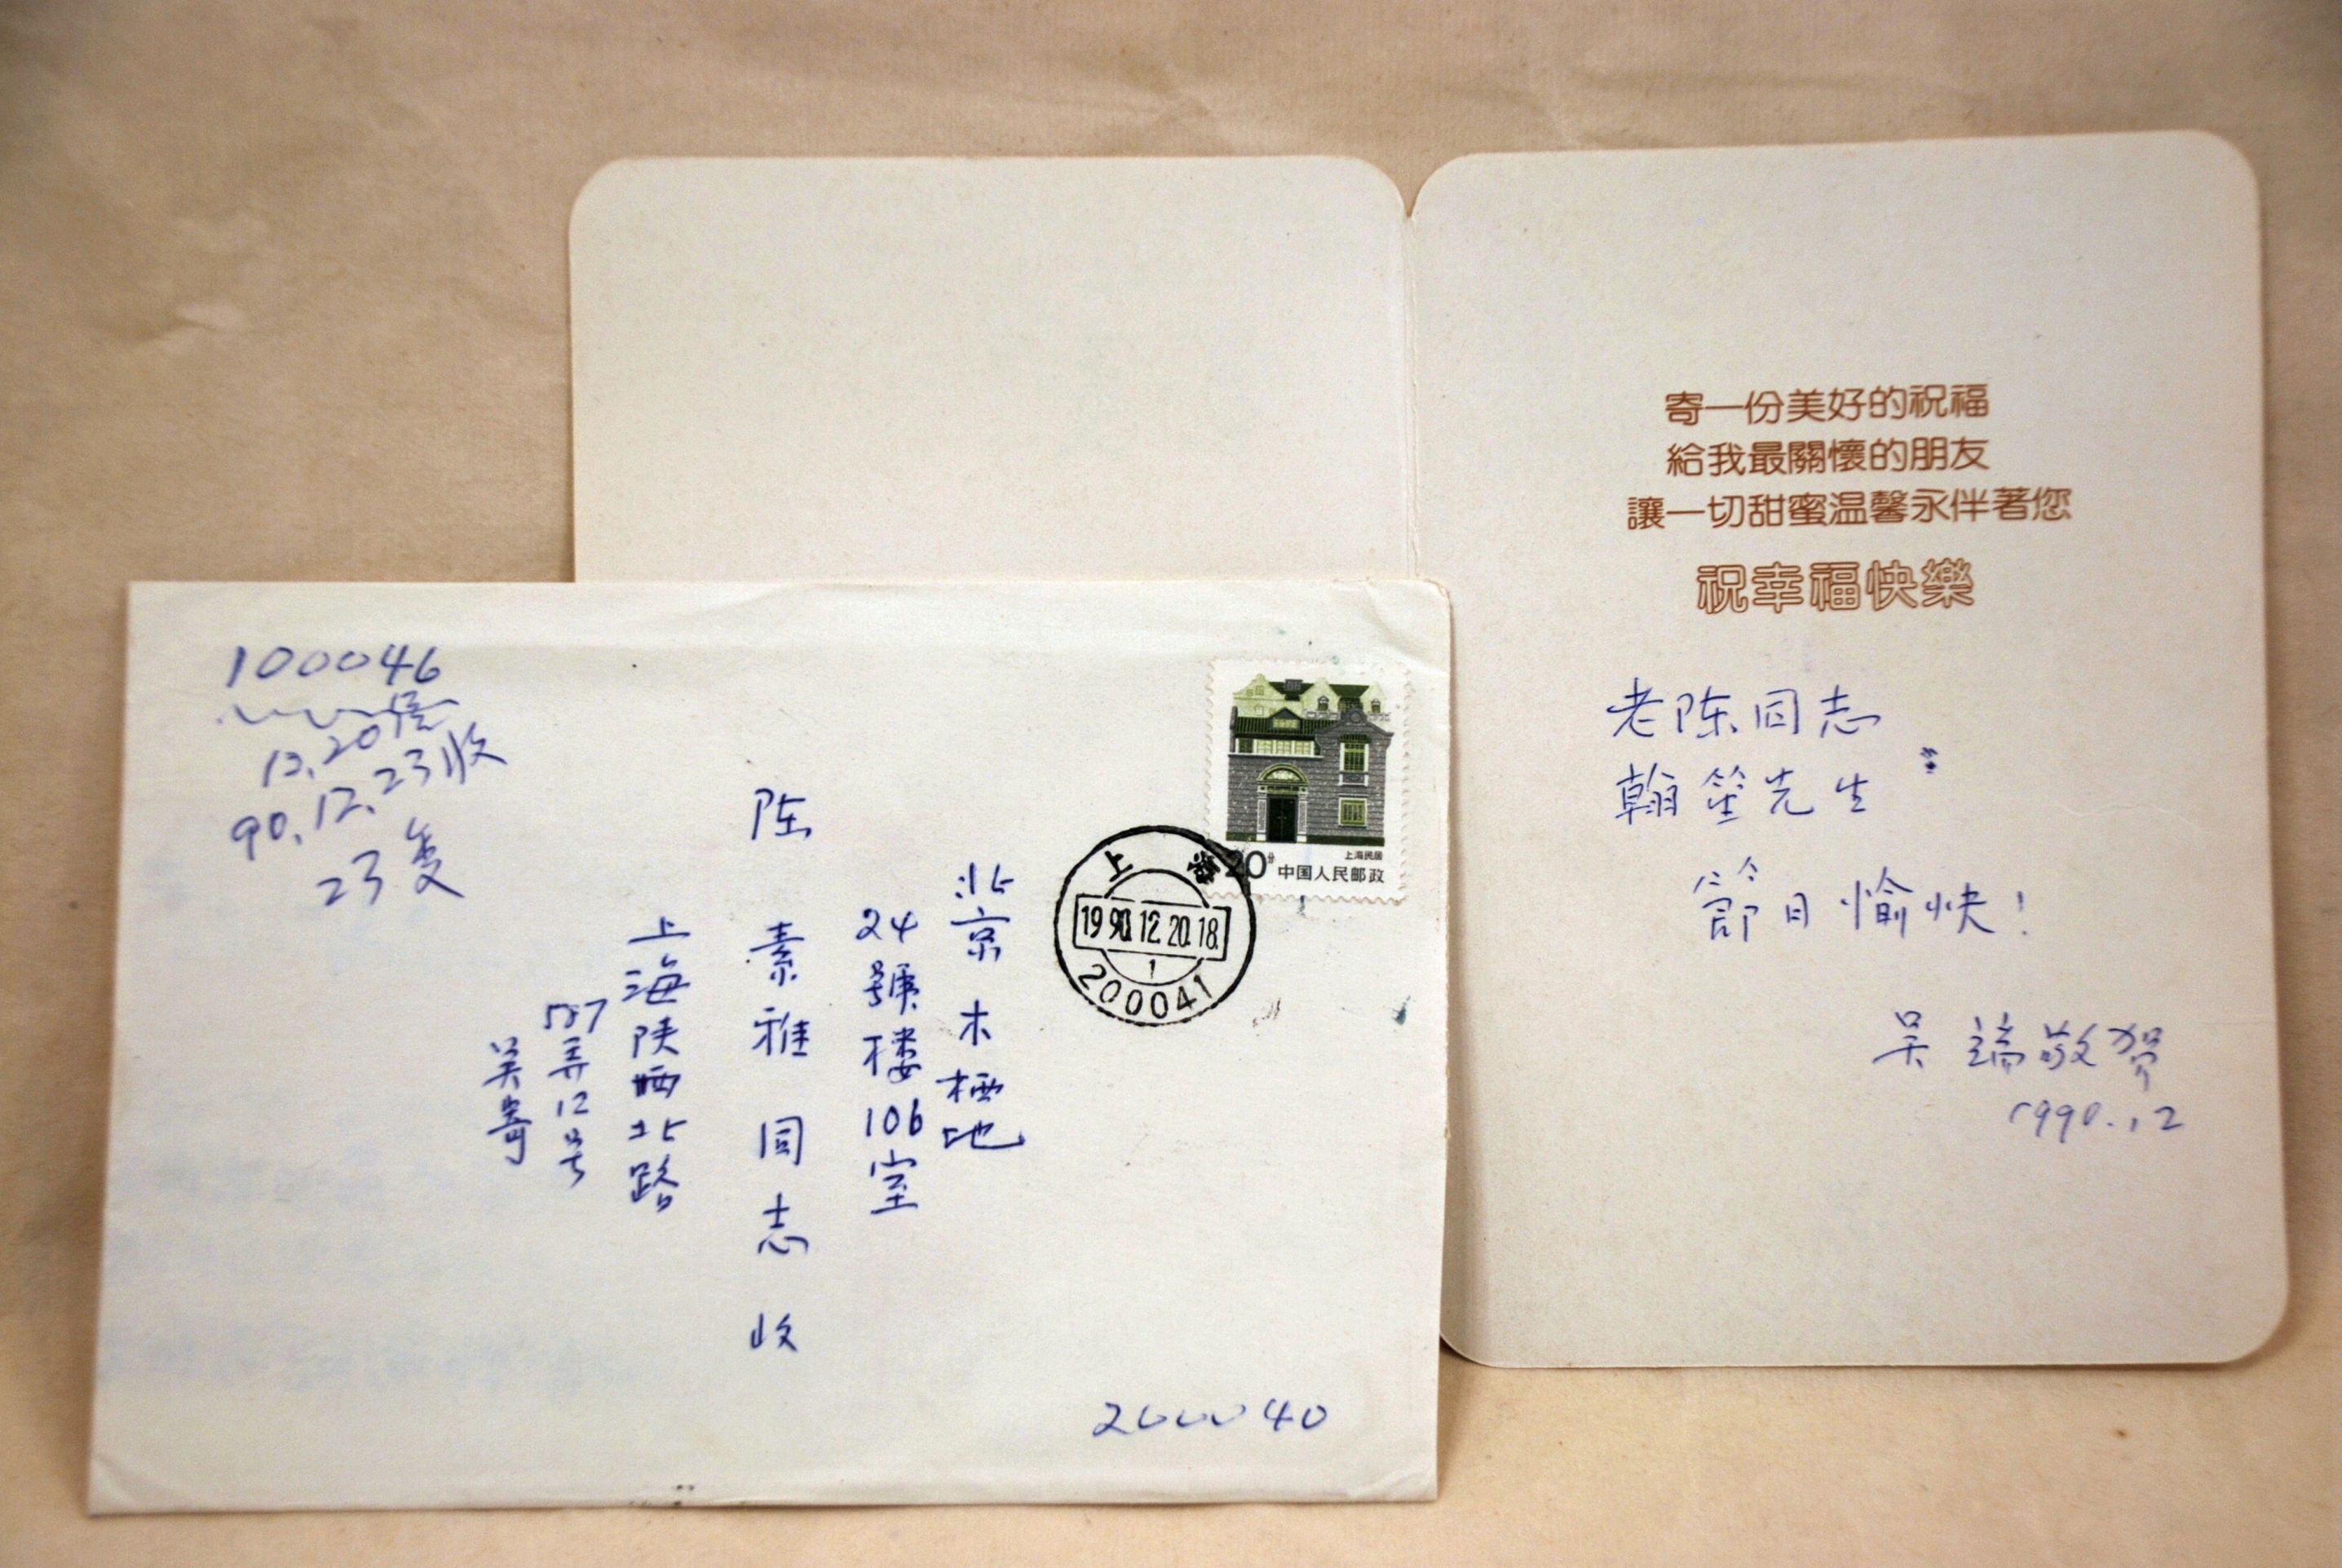 100046
90.12.23收
北京木樨地
24號楼106室
陈素雅同志收
上海陕西北路
587弄12号
吴寄
200040
上海民居
20分 中国人民邮政
上海
1990.12.20.18.
1
200041
寄一份美好的祝福
給我最關懷的朋友
讓一切甜蜜温馨永伴著您
祝幸福快樂
老陈同志
翰笙先生：
節日愉快！
吴 敬贺
1990.12